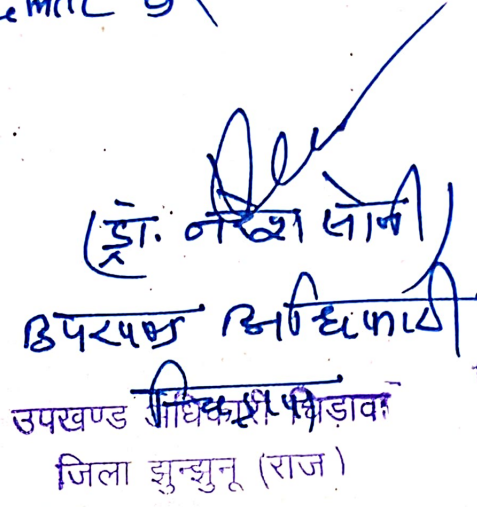 (डॉ. नरेश सोनी)
उपखण्ड अधिकारी
चिड़ावा
उपखण्ड अधिकारी चिड़ावा
जिला झुन्झुनू (राज)